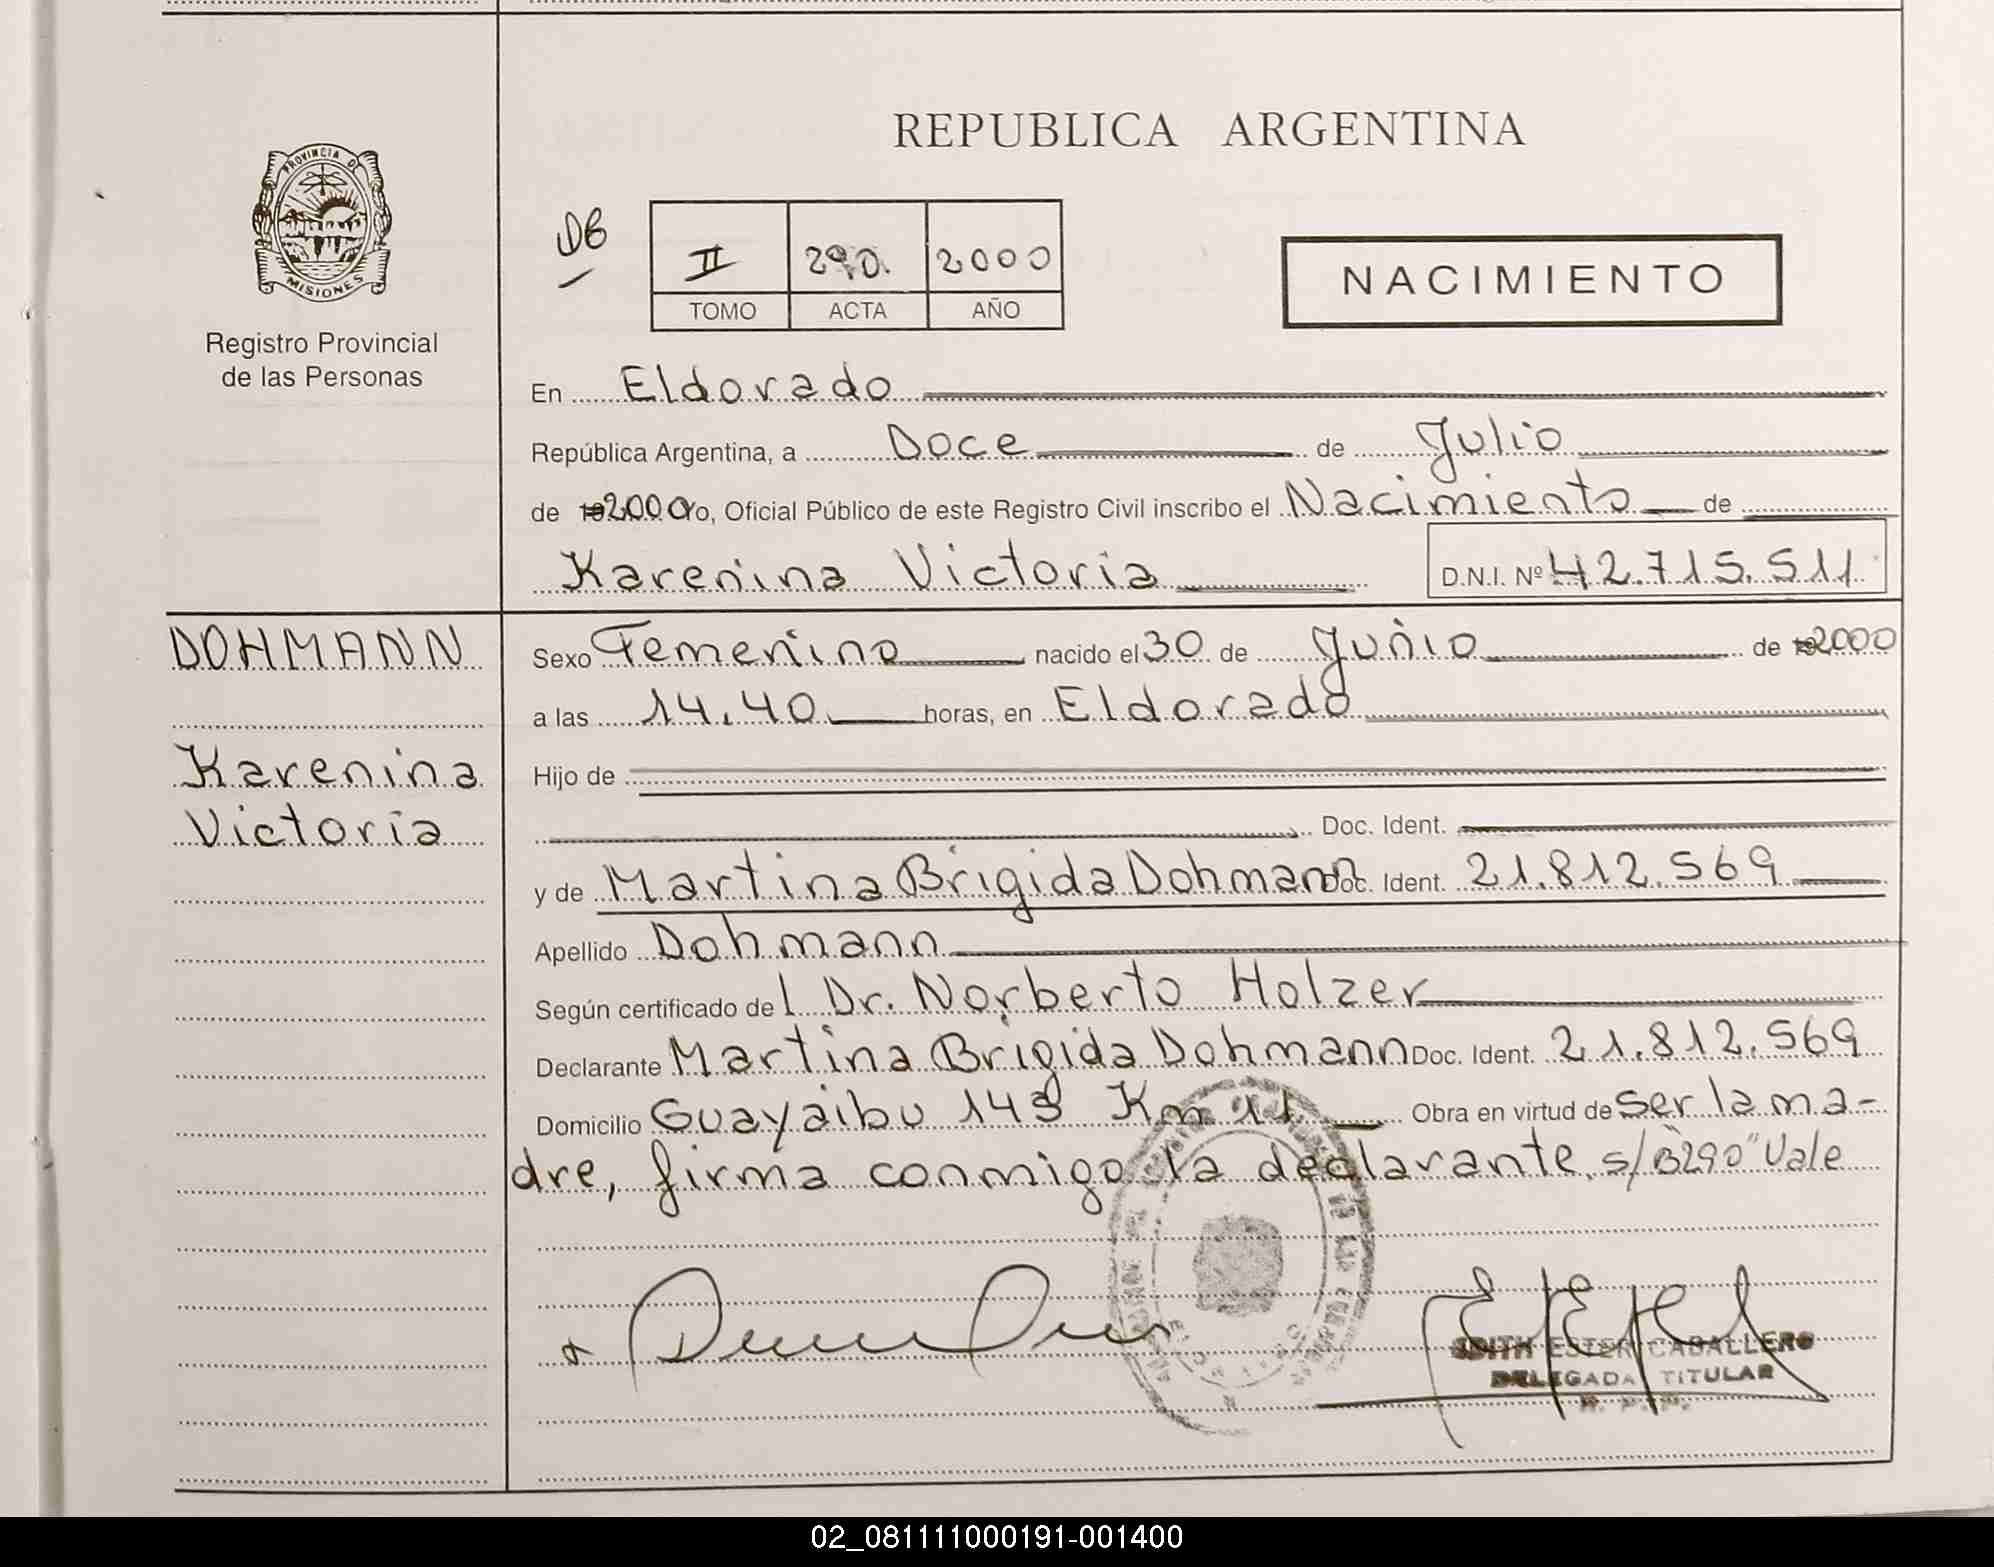 REPUBLICA ARGENTINA
PROVINCIA DE
MISIONES
Registro Provincial
de las Personas
DB
II 290. 2000
TOMO ACTA AÑO
NACIMIENTO
En Eldorado
República Argentina, a Doce de Julio
de 2000 Yo, Oficial Público de este Registro Civil inscribo el Nacimiento de
Karenina Victoria D.N.I. Nº 42.715.511
DOHMANN
Karenina
Victoria
Sexo Femenino nacido el 30 de Junio de 2000
a las 14.40 horas, en Eldorado
Hijo de
Doc. Ident.
y de Martina Brigida Dohmann Doc. Ident. 21.812.569
Apellido Dohmann
Según certificado del Dr. Norberto Holzer
Declarante Martina Brigida Dohmann Doc. Ident. 21.812.569
Domicilio Guayaibu 143 Km 11 Obra en virtud de ser la ma-
dre, firma conmigo la declarante, s/B 290" Vale
EDITH ESTER CABALLERO
DELEGADA TITULAR
R. P. P.
02_081111000191-001400